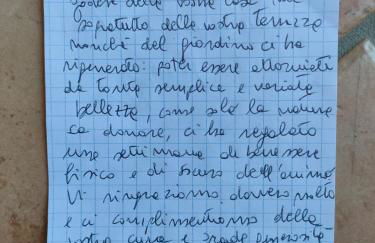 godere delle vostre case ma
sopratutto della vostra terrazza
nonché del giardino ci ha
rigenerato: poter essere attorniati
da tanta semplice e variata
bellezza, come solo la natura
sa donare, ci ha regalato
una settimana di benessere
fisico e di sicuro dell'animo.
Vi ringraziamo davvero molto
e ci complimentiamo della
vostra cura e grande generosità